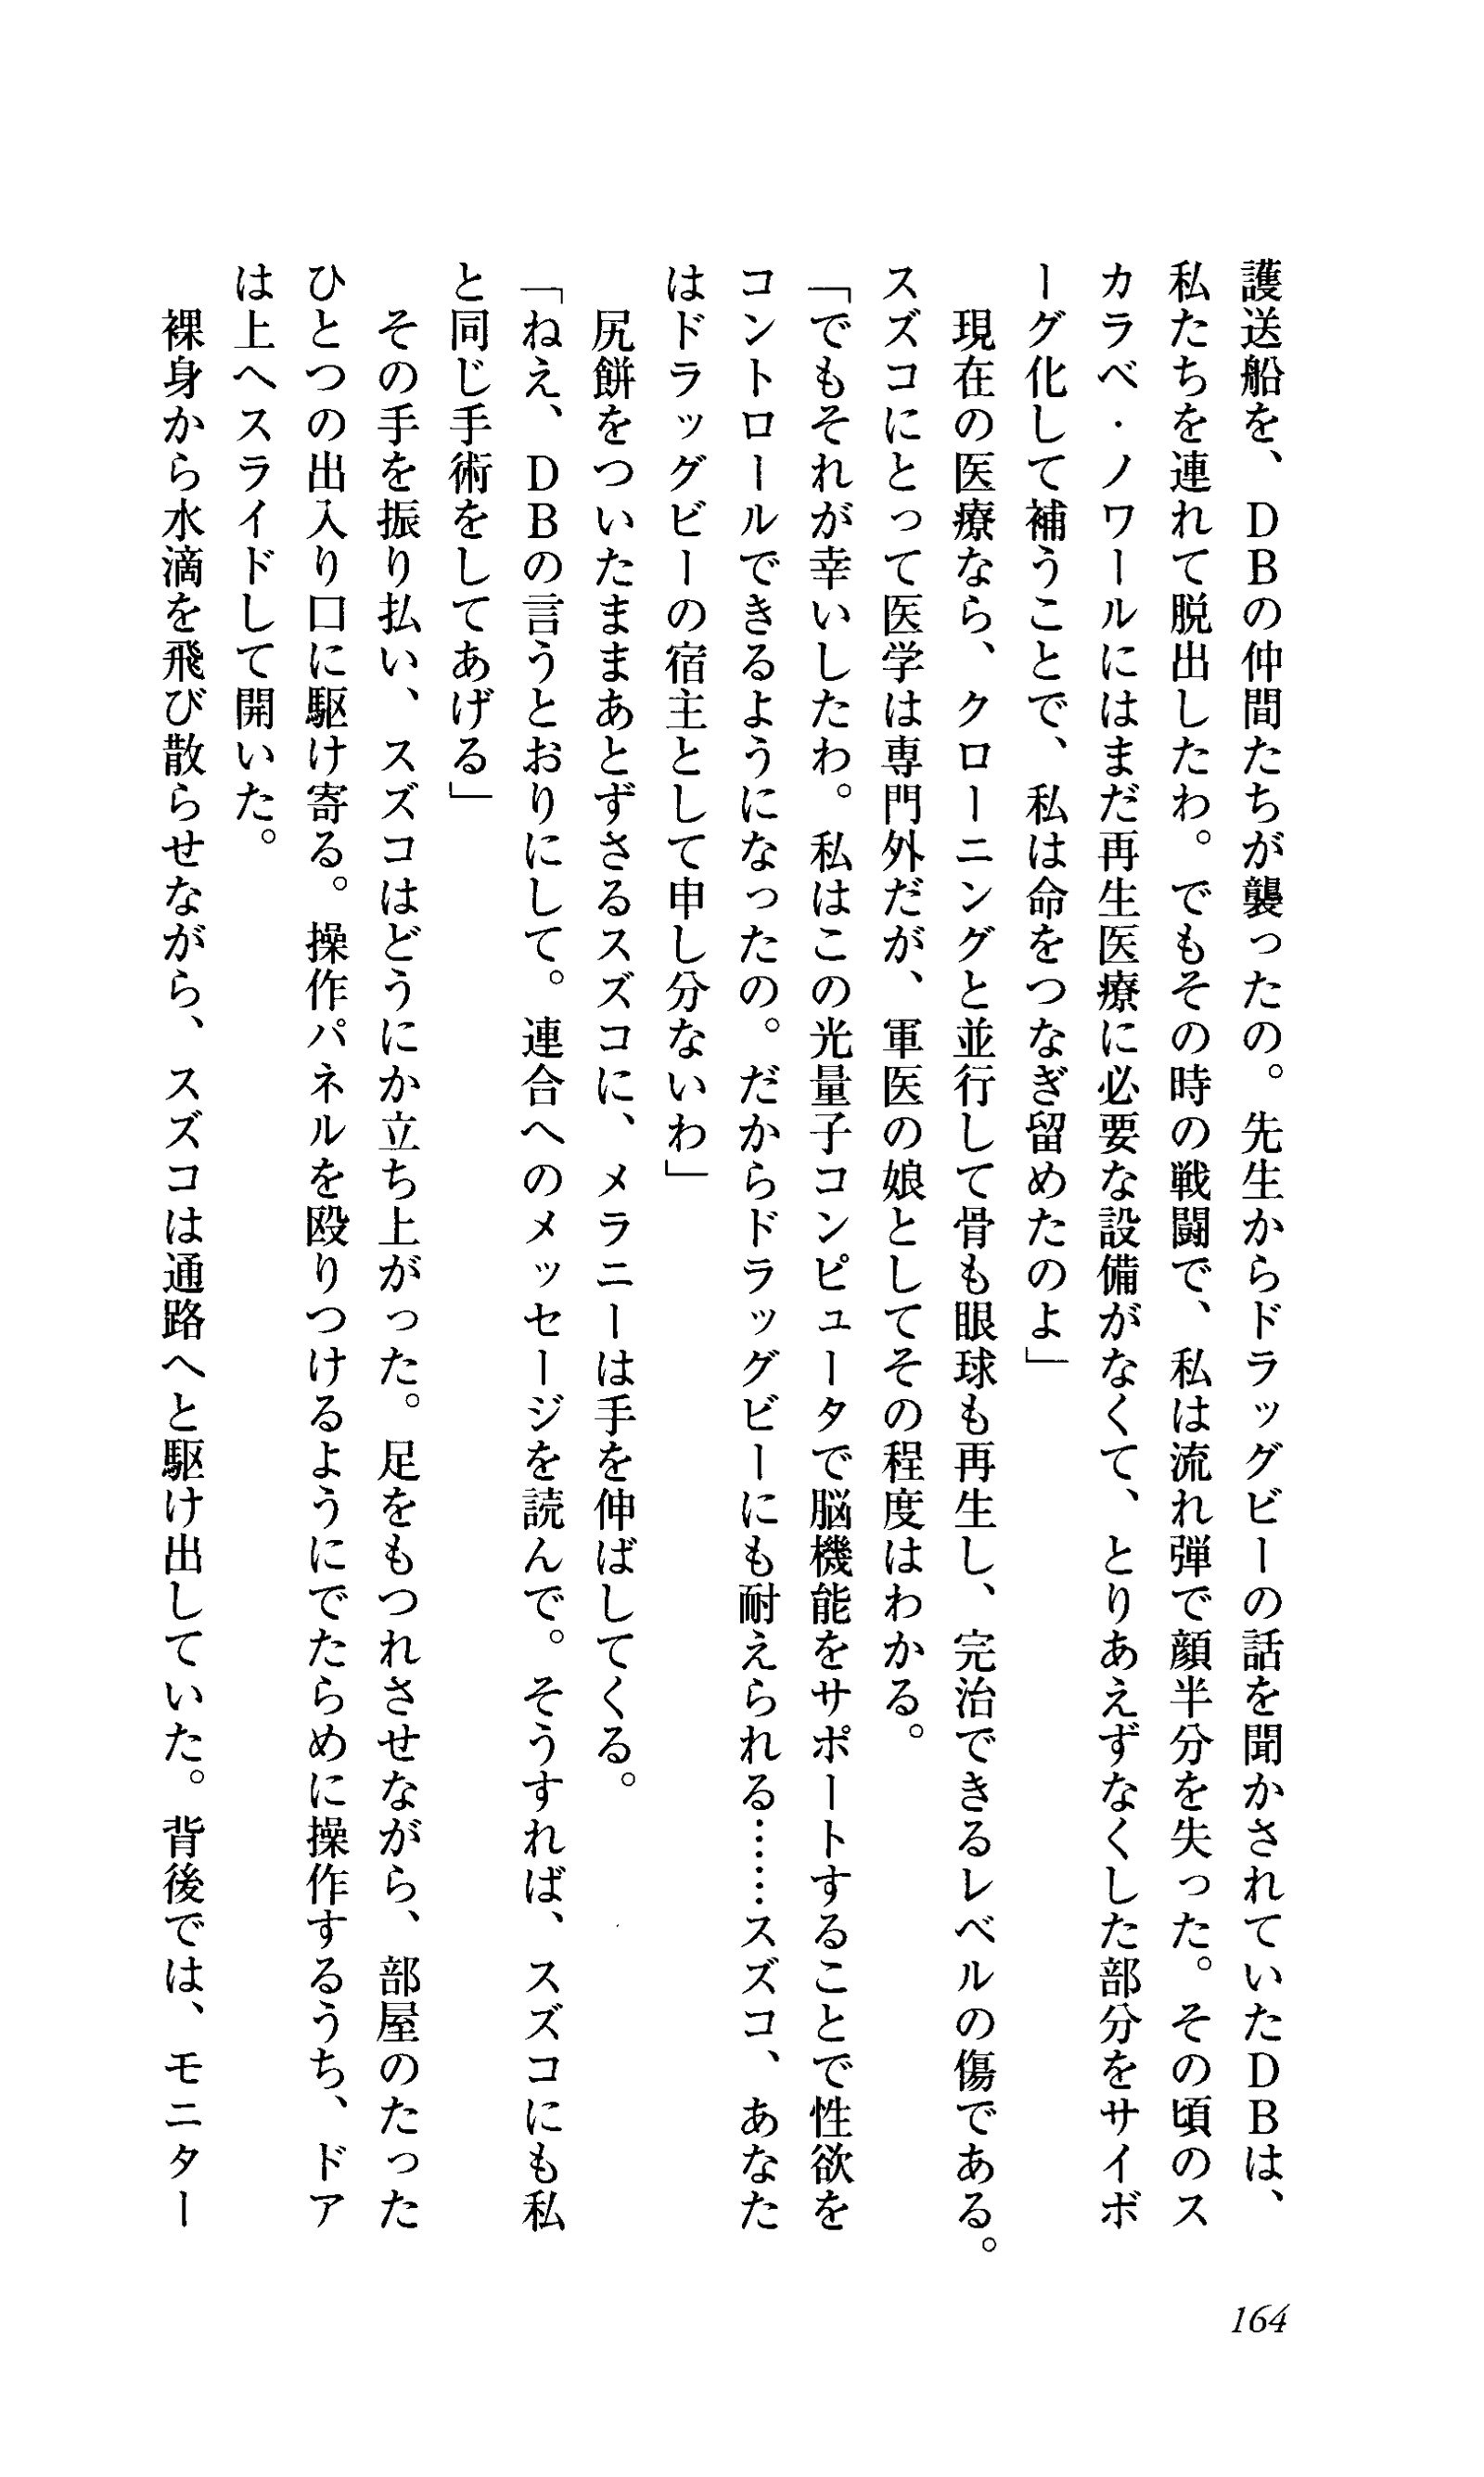 護送船を、DBの仲間たちが襲ったの。先生からドラッグビーの話を聞かされていたDBは、
私たちを連れて脱出したわ。でもその時の戦闘で、私は流れ弾で顔半分を失った。その頃のス
カラベ・ノワールにはまだ再生医療に必要な設備がなくて、とりあえずなくした部分をサイボ
ーグ化して補うことで、私は命をつなぎ留めたのよ」
　現在の医療なら、クローニングと並行して骨も眼球も再生し、完治できるレベルの傷である。
スズコにとって医学は専門外だが、軍医の娘としてその程度はわかる。
「でもそれが幸いしたわ。私はこの光量子コンピュータで脳機能をサポートすることで性欲を
コントロールできるようになったの。だからドラッグビーにも耐えられる……スズコ、あなた
はドラッグビーの宿主として申し分ないわ」
　尻餅をついたままあとずさるスズコに、メラニーは手を伸ばしてくる。
「ねえ、DBの言うとおりにして。連合へのメッセージを読んで。そうすれば、スズコにも私
と同じ手術をしてあげる」
　その手を振り払い、スズコはどうにか立ち上がった。足をもつれさせながら、部屋のたった
ひとつの出入り口に駆け寄る。操作パネルを殴りつけるようにでたらめに操作するうち、ドア
は上へスライドして開いた。
　裸身から水滴を飛び散らせながら、スズコは通路へと駆け出していた。背後では、モニター
164